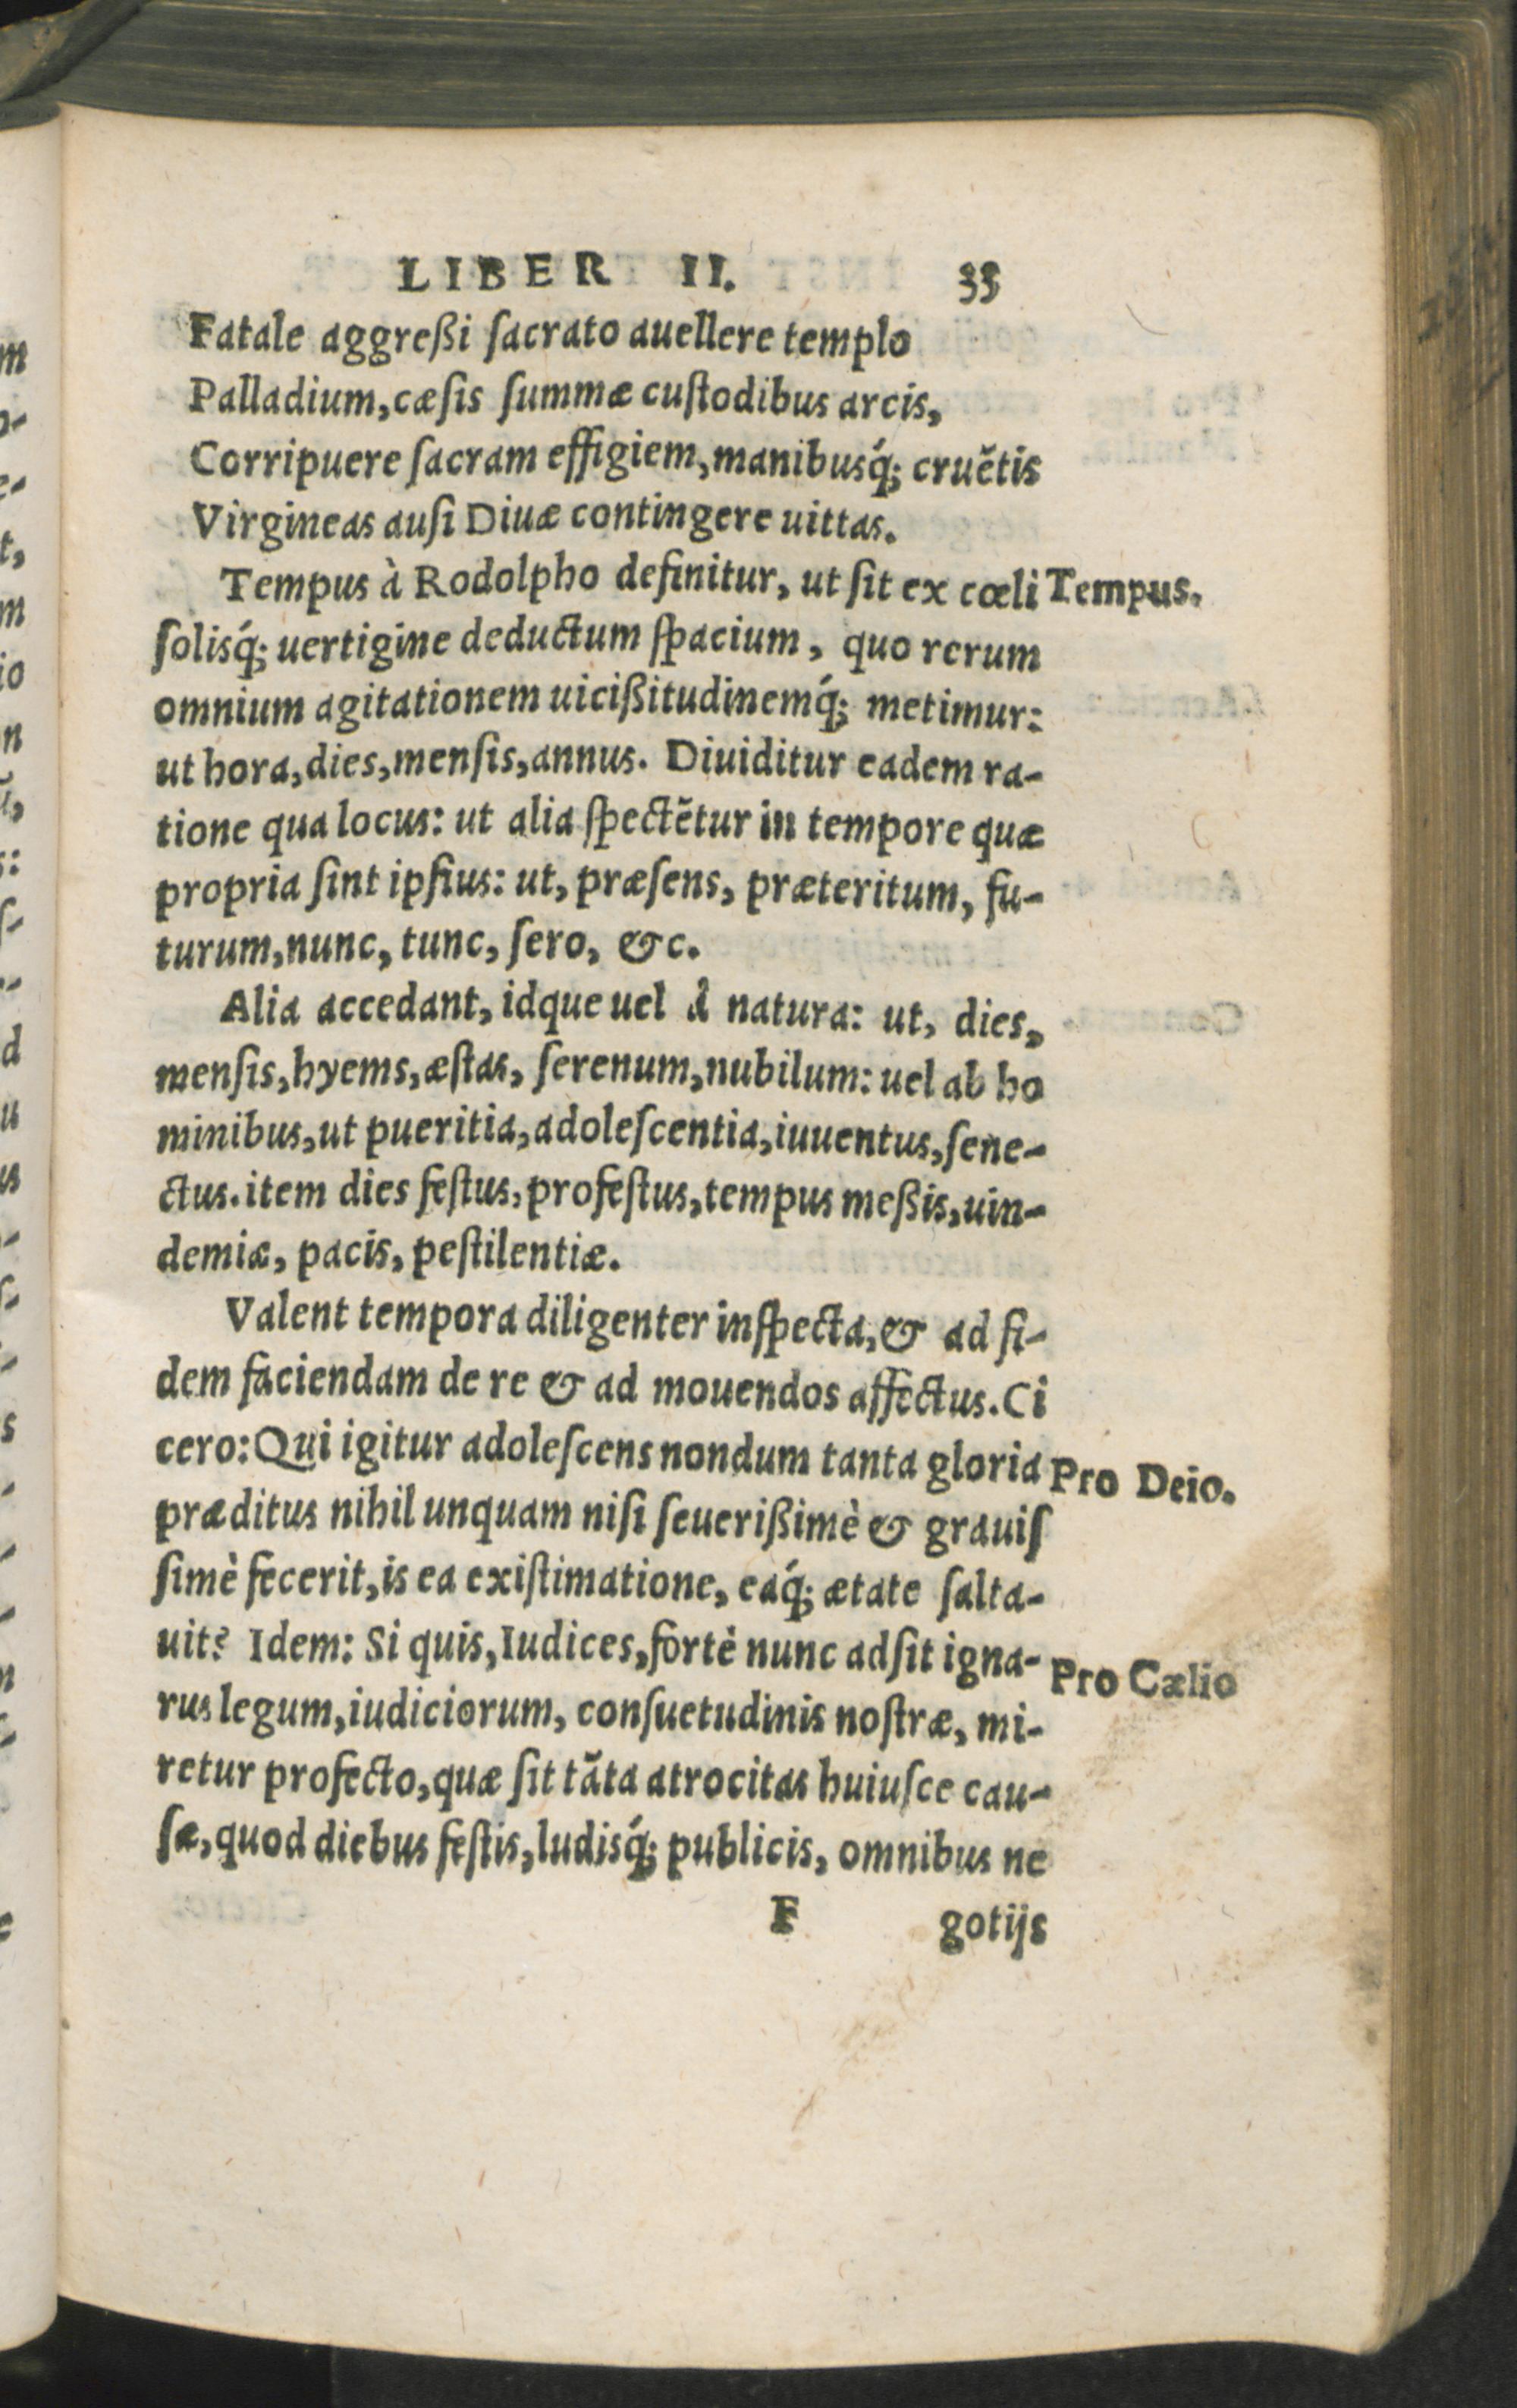 LIBER II. 33
Fatale aggreßi ſacrato auellere templo
Palladium, cæſis ſummæ cuſtodibus arcis,
Corripuere ſacram effigiem, manibusq́; cruẽtis
Virgineas auſi Diuæ contingere uittas.
Tempus à Rodolpho definitur, ut ſit ex cœli Tempus.
ſolisq́; uertigine deductum ſpacium, quo rerum
omnium agitationem uicißitudinemq́; metimur:
ut hora, dies, menſis, annus. Diuiditur eadem ra-
tione qua locus: ut alia ſpectẽtur in tempore quæ
propria ſint ipſius: ut, præſens, præteritum, fu-
turum, nunc, tunc, ſero, &c.
Alia accedant, idque uel à natura: ut, dies,
menſis, hyems, æſtas, ſerenum, nubilum: uel ab ho
minibus, ut pueritia, adoleſcentia, iuuentus, ſene-
ctus. item dies feſtus, profeſtus, tempus meßis, uin-
demiæ, pacis, peſtilentiæ.
Valent tempora diligenter inſpecta, & ad fi-
dem faciendam de re & ad mouendos affectus. Ci
cero: Qui igitur adoleſcens nondum tanta gloria Pro Deio.
præditus nihil unquam niſi ſeuerißimè & grauiſ
ſimè fecerit, is ea exiſtimatione, eaq́; ætate ſalta-
uit? Idem: Si quis, Iudices, fortè nunc adſit igna- Pro Cælio
rus legum, iudiciorum, conſuetudinis noſtræ, mi-
retur profecto, quæ ſit tãta atrocitas huiuſce cau-
ſæ, quod diebus feſtis, ludisq́; publicis, omnibus ne
F gotijs